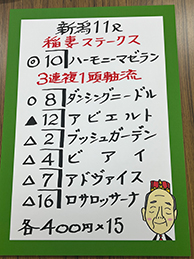 新潟11R
稲妻ステークス
◎10ハーモニーマゼラン
3連複1頭軸流
○8ダンシングニードル
▲12アビエルト
△2ブッシュガーデン
△4ピアイ
△7アドヴァイス
△16ロサロッサーナ
各400円×15